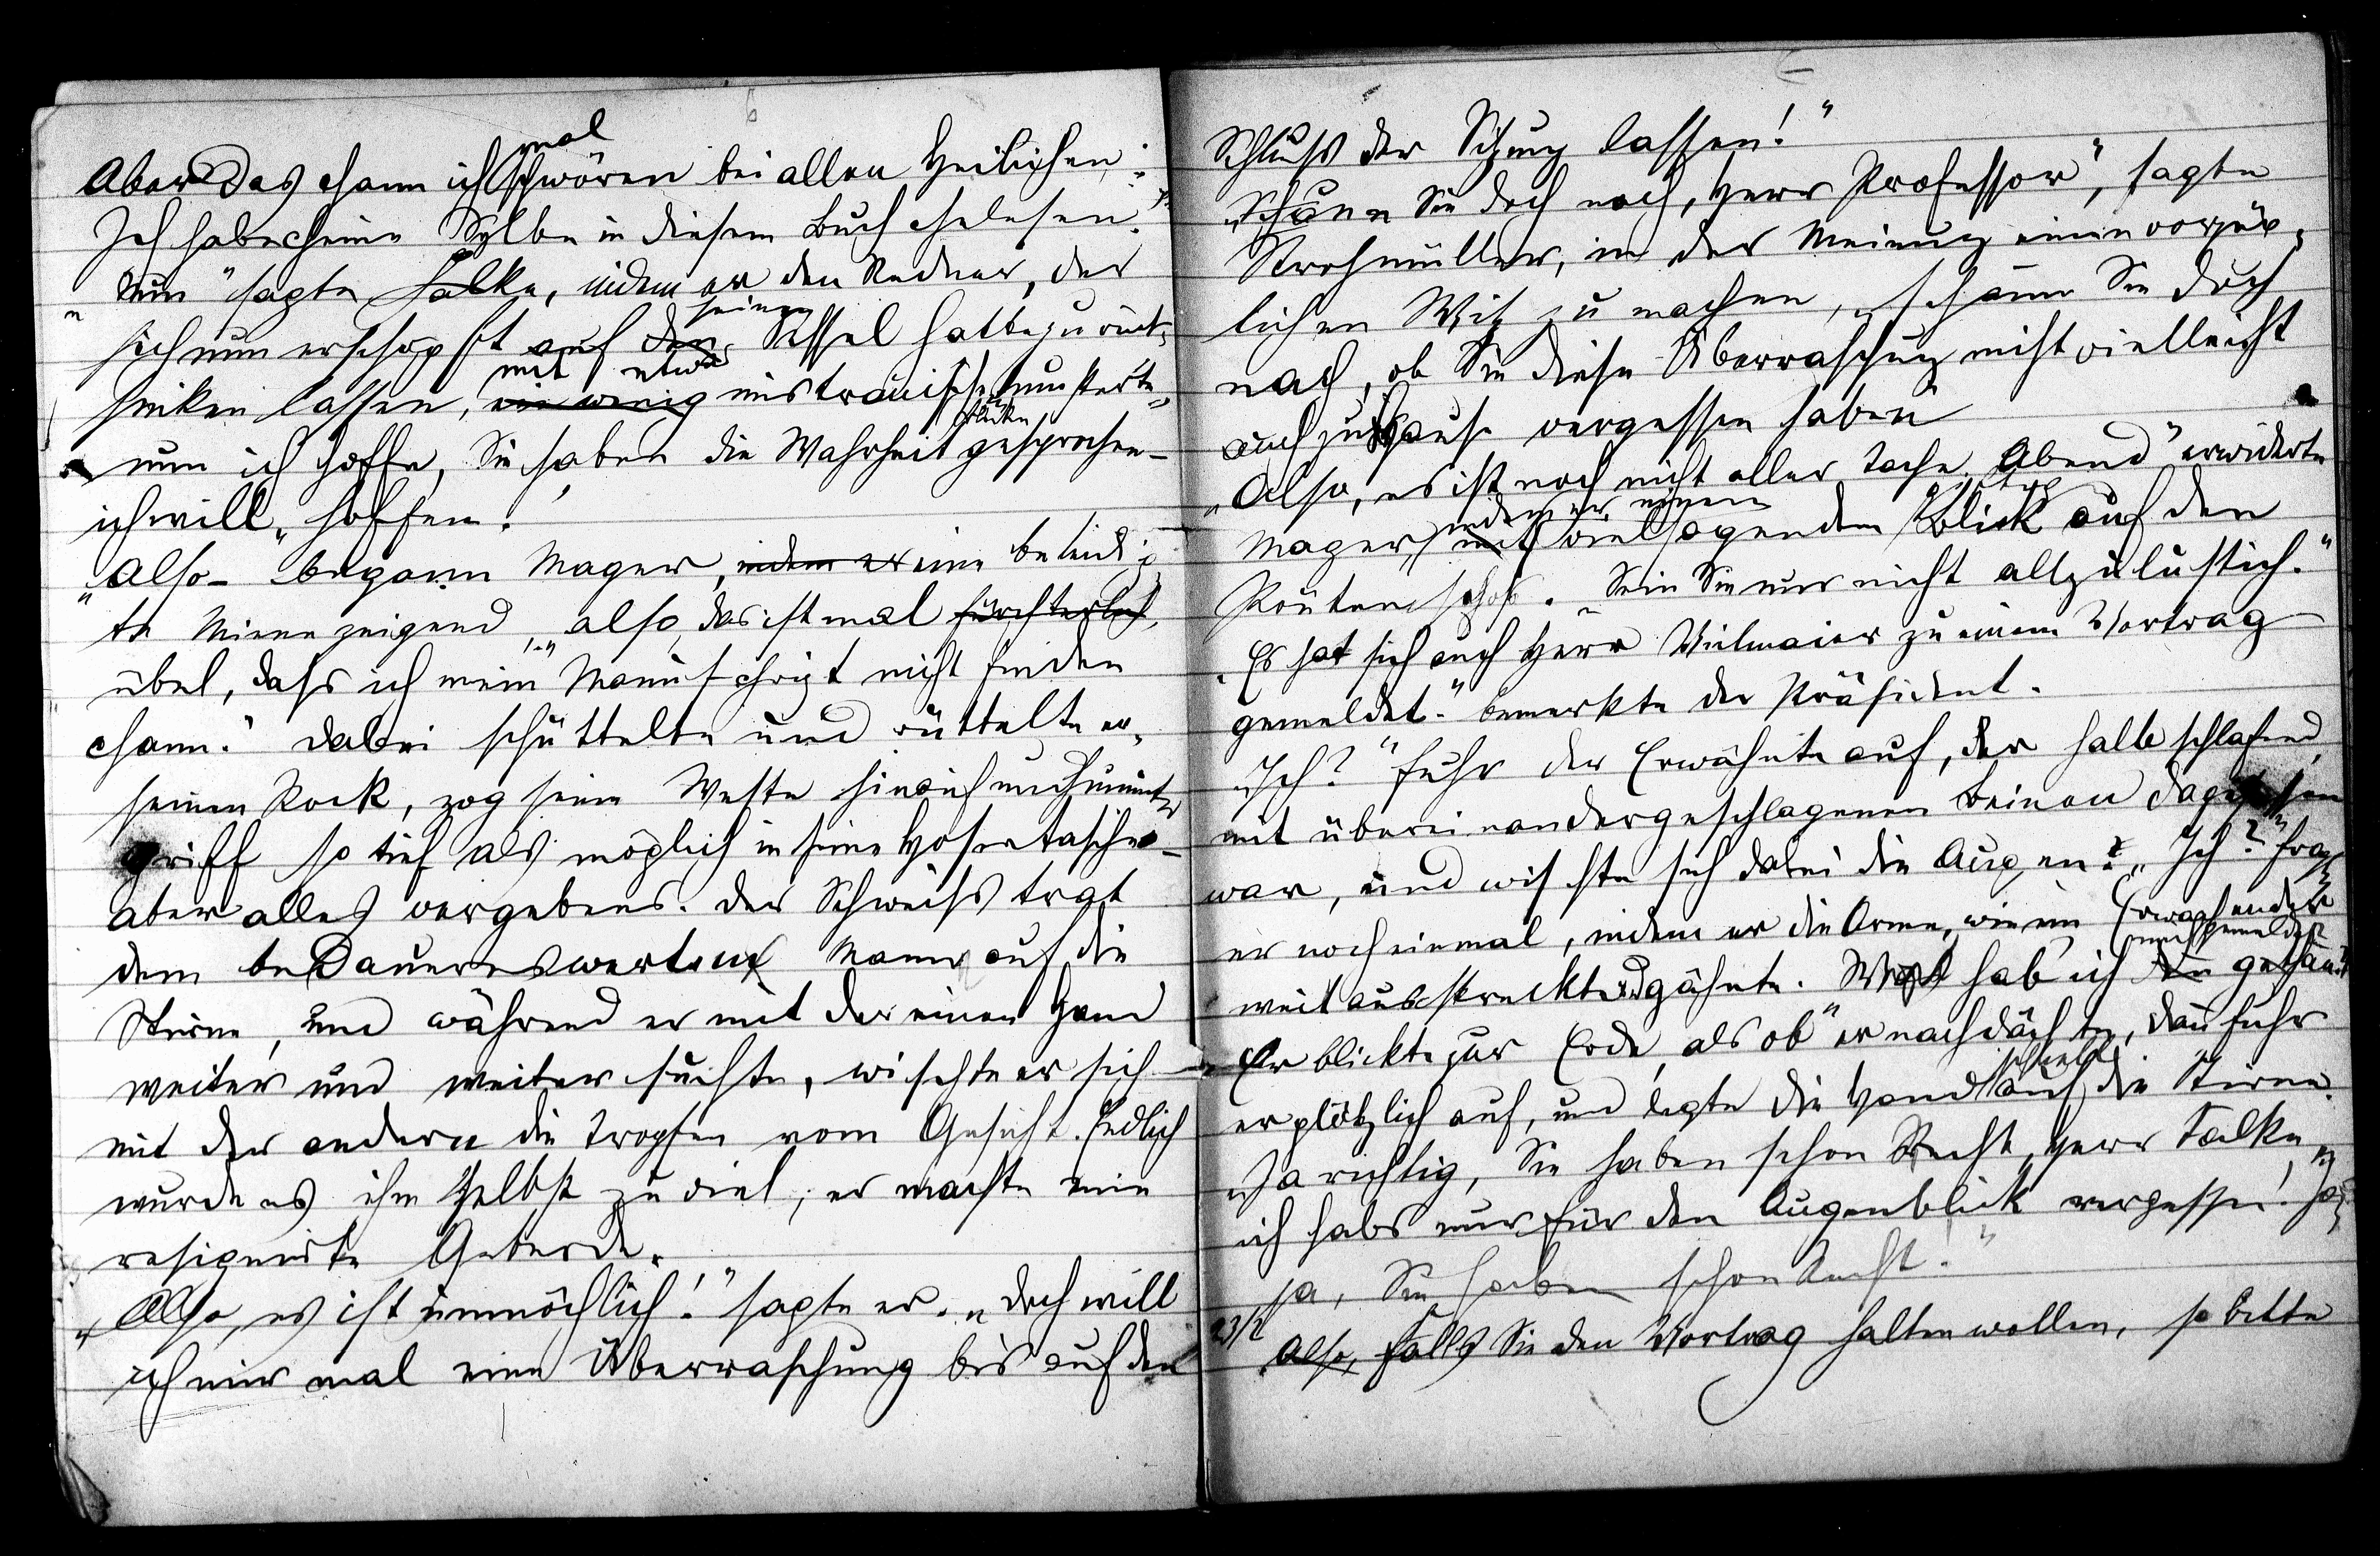 Aber das chann ich mal schwören bei allen Heilichen:
Ich habe cheine Sylbe in diesem Buch chelesen."
„Nun" sagte Falke, indem er den Redner, der
sich nun erschöpft auf seinen Sessel hatte zurück-
sinken lassen, mit etwas mistrauischen Blicken musterte
„nun ich hoffe, Sie haben die Wahrheit gesprochen –
ich will hoffen."
„Also – begann Mager, eine beleidig-
te Miene zeigend, „also, das ist mal fürchterlich
übel, dass ich mein Manuschrigt nicht finden
chann." Dabei schüttelte und rüttelte er
seinen Rock, zog seine Weste hinauf und hinunter
griff so tief als möglich in seine Hosentaschen –
aber alles vergebens. Der Schweiss trat
dem bedauernswerten Mann auf die
Stirne, und während er mit der einen Hand
weiter und weiter suchte, wischte er sich
mit der andern die Tropfen vom Gesicht. Endlich
wurde es ihm selbst zu viel; er machte eine
resignierte Geberde.
„Also, es ist unmöchlich!" sagte er. „Doch will
ich mir mal eine Überraschung bis auf den
Schluss der Sitzung lassen!"
„Schaun Sie doch nach, Herr Professor", sagte
Strohmüller, in der Meinung einen vorzüg-
lichen Witz zu machen, „schaun Sie doch
nach, ob Sie diese Überraschung nicht vielleicht
auch zu Hause vergessen haben"
„Also, es ist noch nicht aller Tache Abend" erwiderte
Mager, indem er einen vielsagenden Blick auf den
Routen schoss. „Sein Sie nur nicht allzulustich."
„Es hat sich auch Herr Vielmaier zu einem Vortrag
gemeldet." bemerkte der Präsident.
„Ich?" fuhr der Erwähnte auf, der halb schlafend,
mit übereinandergeschlagenen Beinen dagesessen
war, und wischte sich dabei die Augen. „Ich?" frag
er noch einmal, indem er die Arme, wie ein Erwachender
weit ausstreckte und gähnte. Was hab' ich mich gemeldet
Er blickte zur Erde, als ob er nachdächte, dann fuhr
er plötzlich auf, und legte die Hand schnell auf die Stirne.
„Ja richtig, Sie haben schon Recht, Herr Falke,
ich habs nur für den Augenblick vergessen! Ja
ja, Sie haben schon Recht."
23/2
Also, Falls Sie den Vortrag halten wollen, so bitte